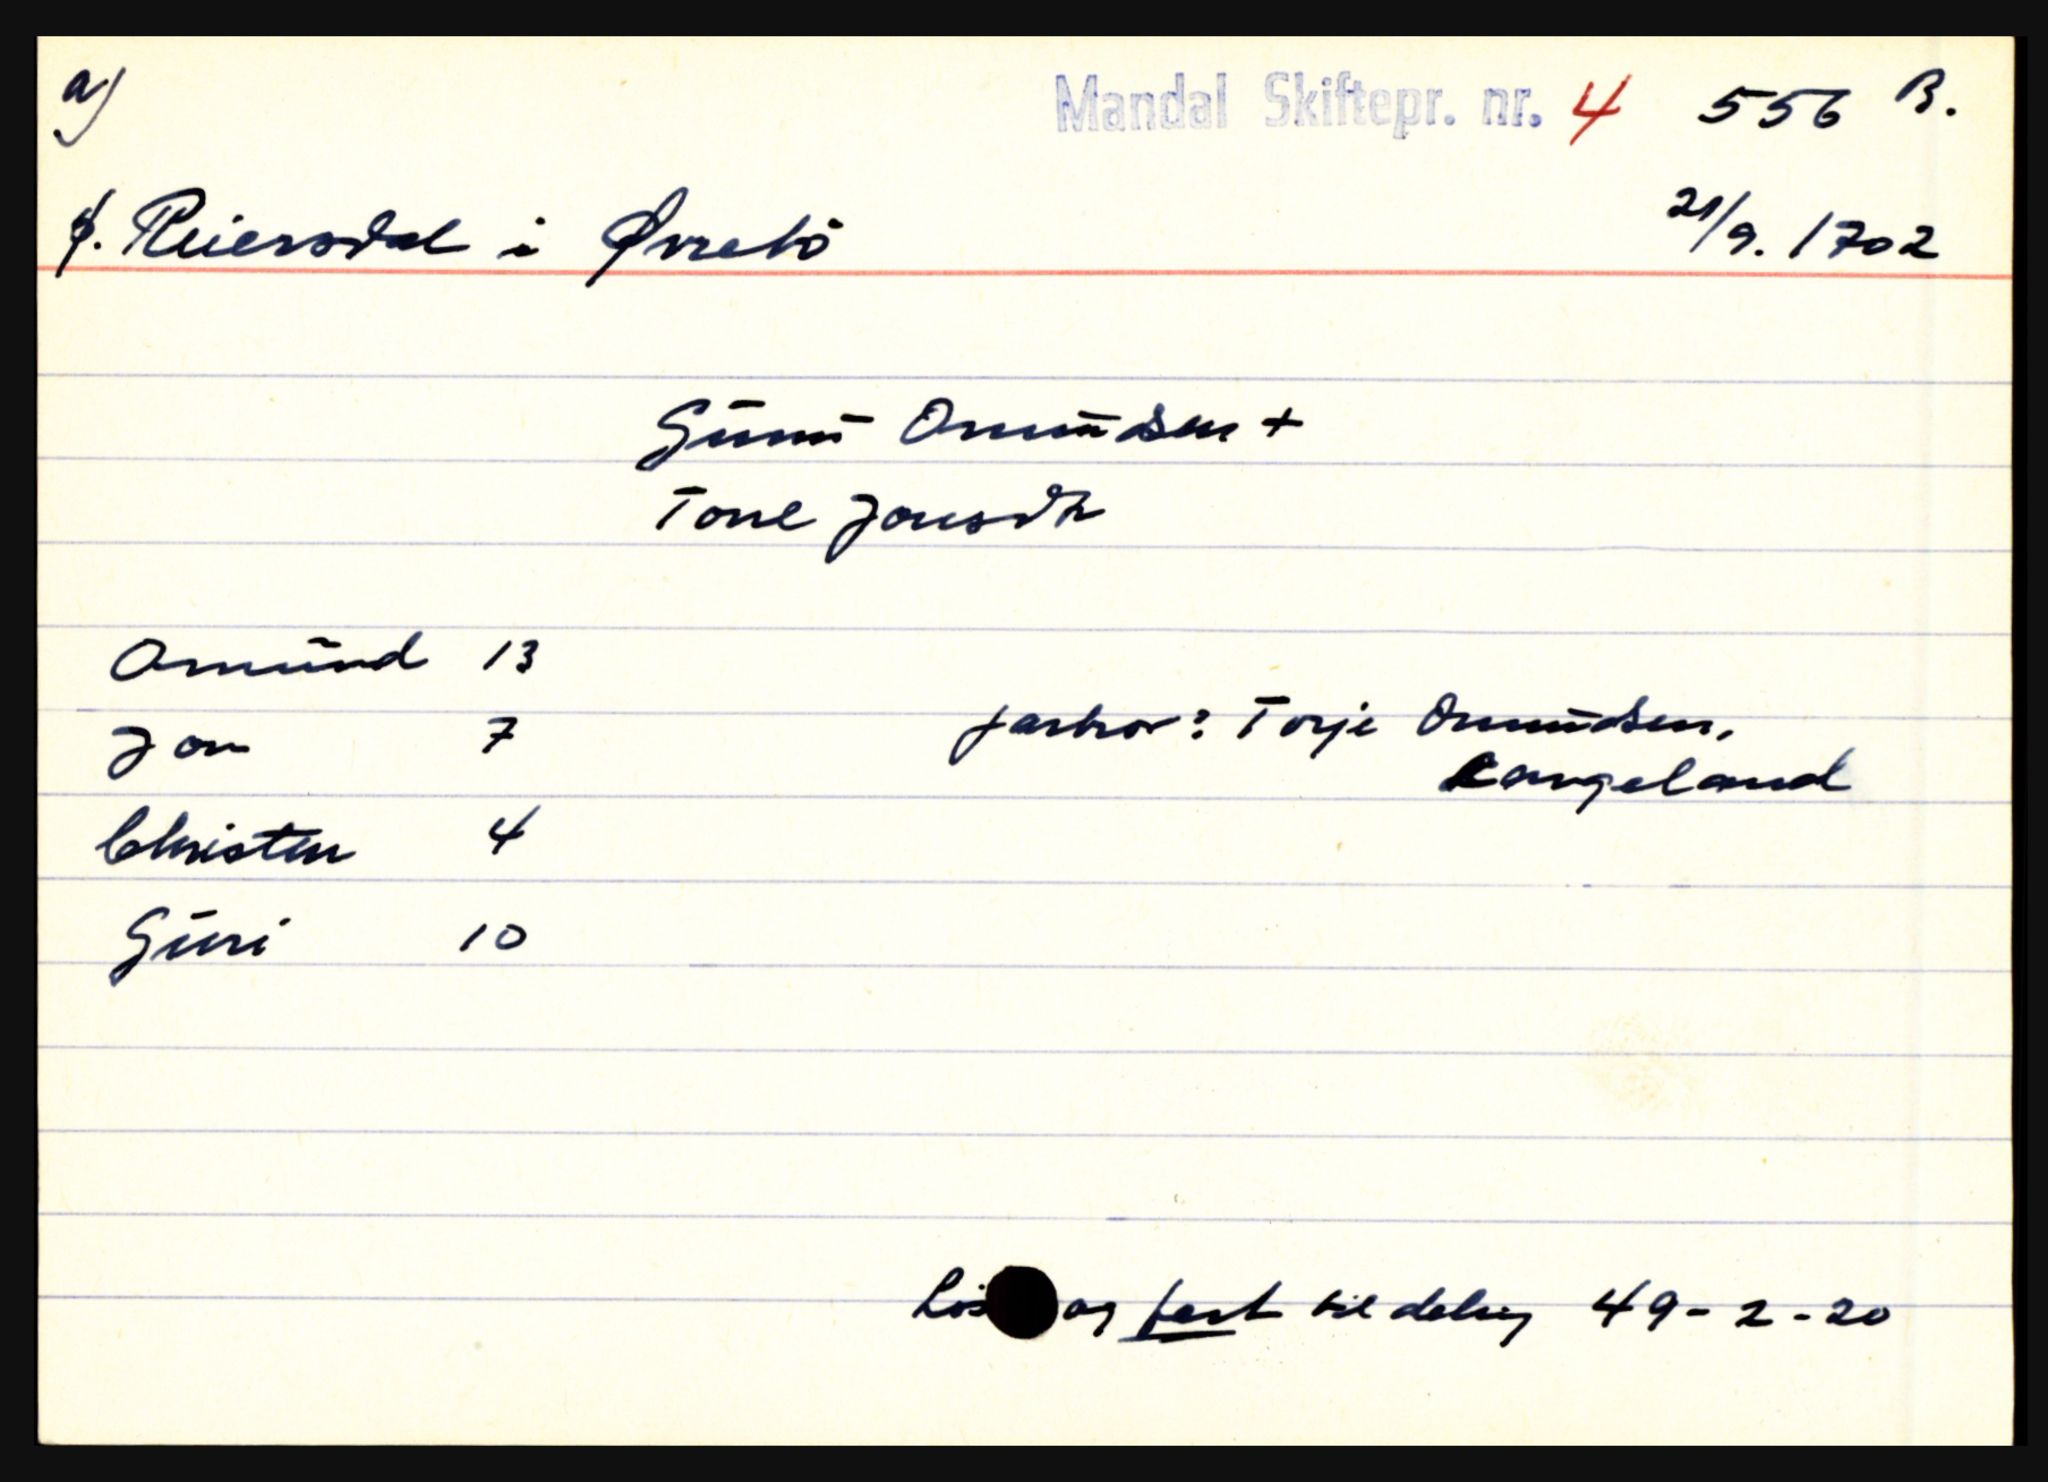 a)
Mandal Skiftepr. nr. 4 556 B.
p. Reiersdal i Øvrebö 21/9. 1702
Omundsen +
Tone Jonsdtr
Omund 13
Jon 7
farbror: Torje Omundsen,
Langeland
Christen 4
Guri 10
Lös og fast til deling 49-2-20